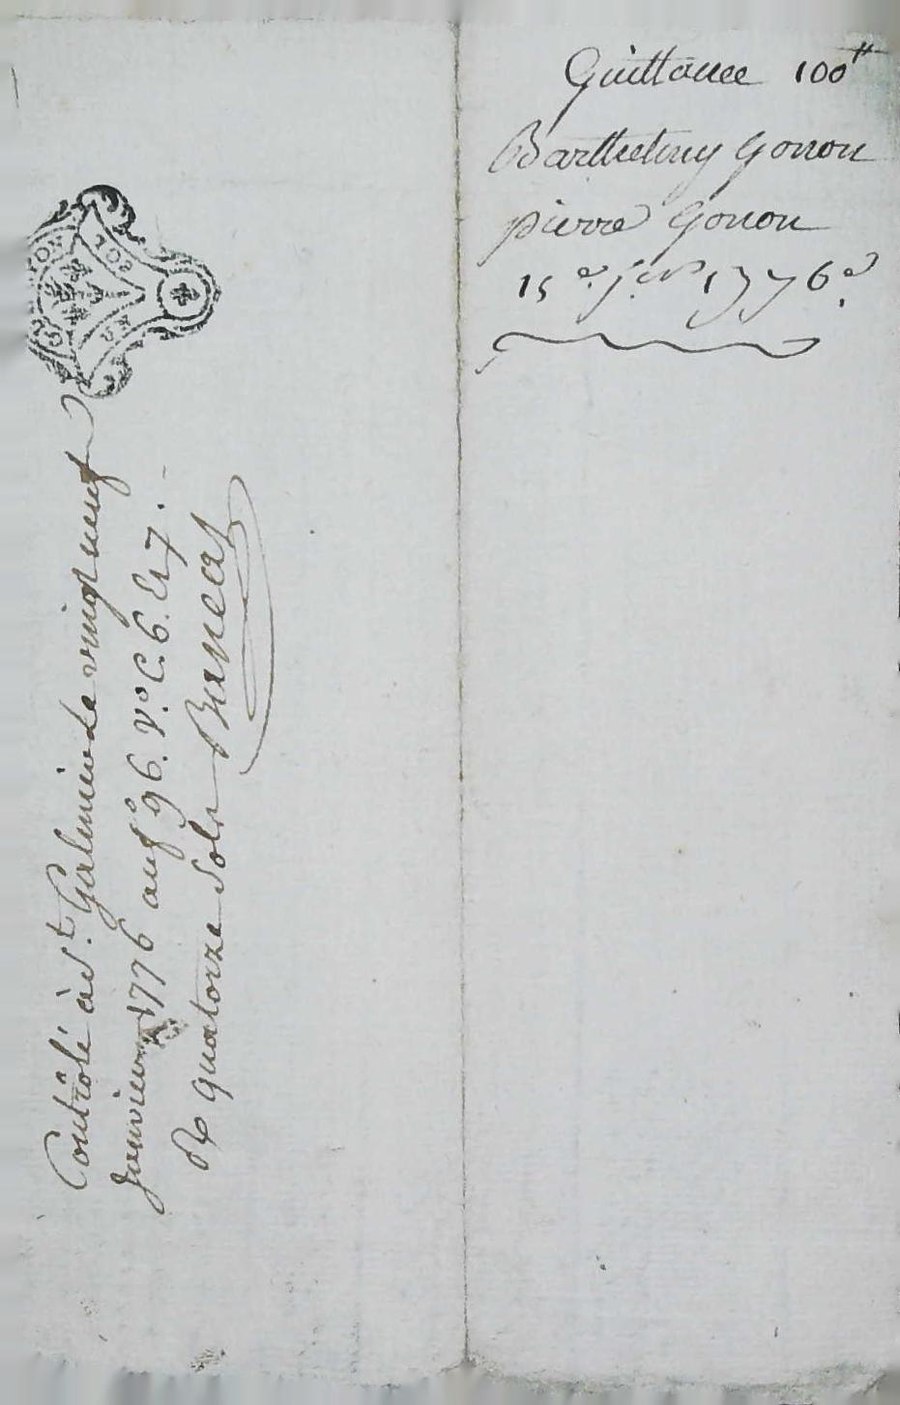 Quittance 100 ₶
Barthelmy Gonon
pierre Gonon
15e. jer. 1776e.
Contrôlé à St. Galmier le vingt neuf
Janvier 1776 au fo. 96. Vo. C. 6. Et 7.
R quatorze sols